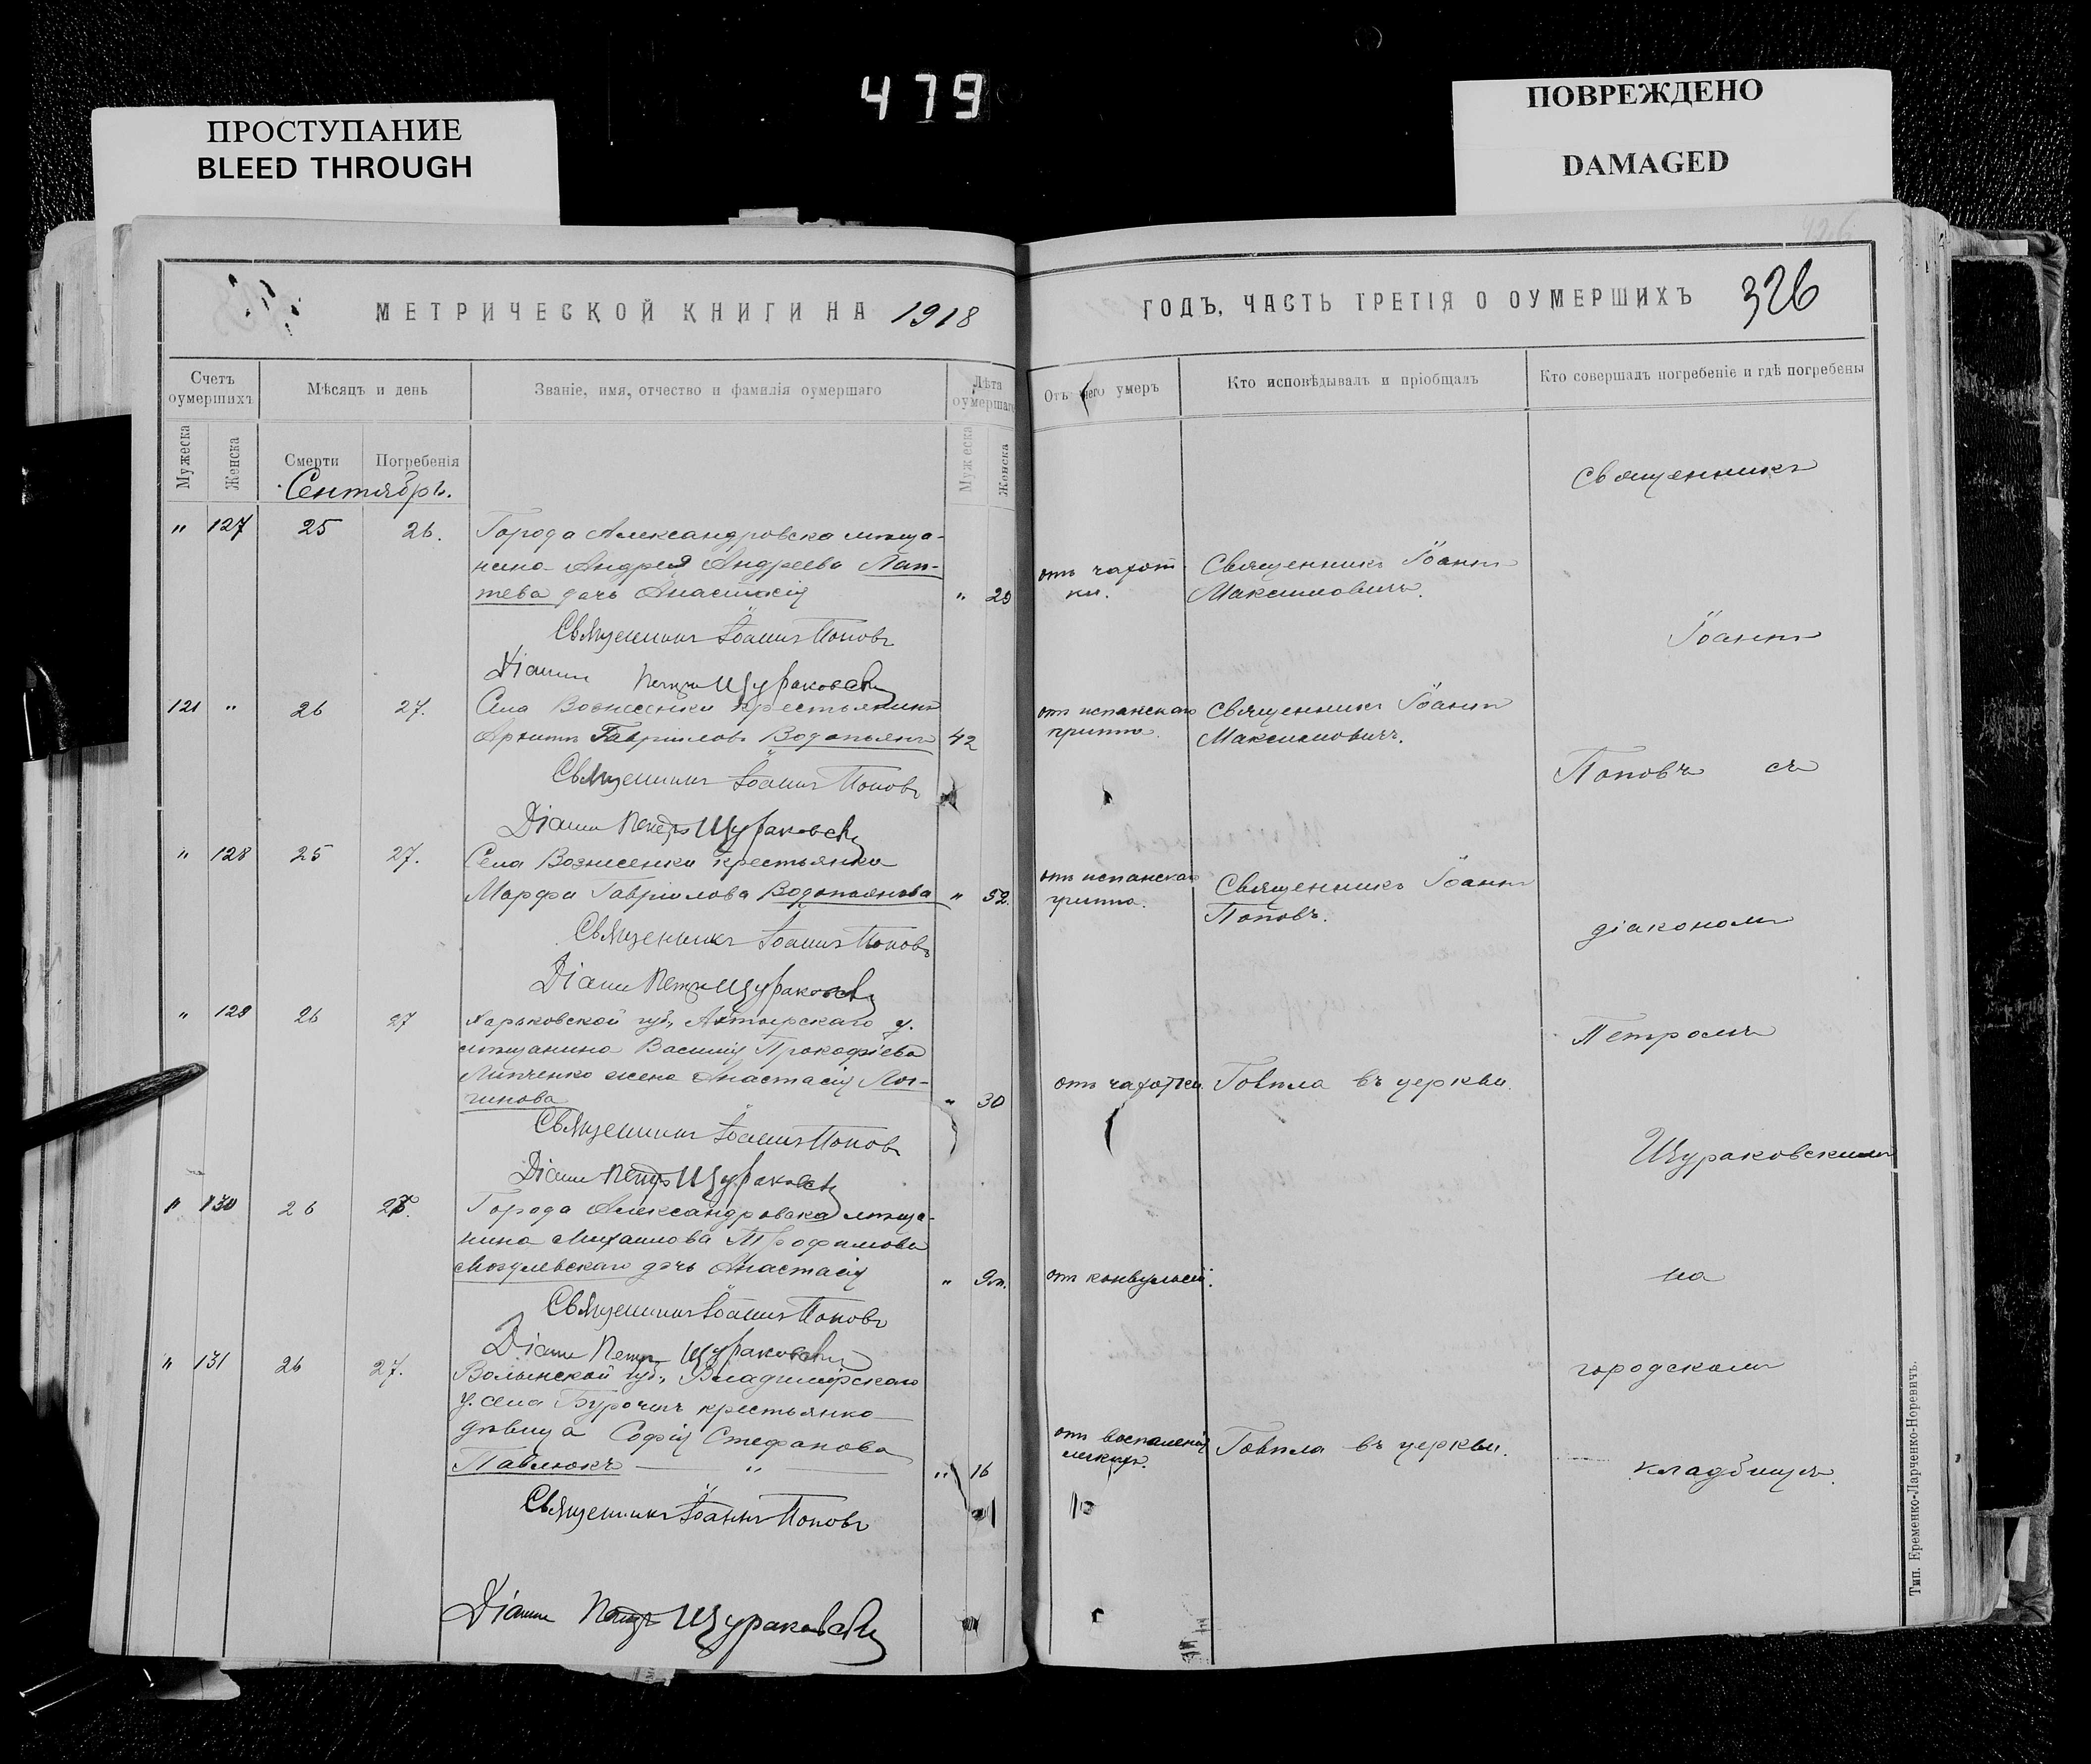 479
ПРОСТУПАНИЕ
BLEED THROUGH
ПОВРЕЖДЕНО
DAMAGED
МЕТРИЧЕСКОЙ КНИГИ НА 1918
ГОДЪ, ЧАСТЬ ТРЕТІЯ О ОУМЕРШИХЪ 326
Счетъ оумершихъ
Мѣсяцъ и день
Званіе, имя, отчество и фамилія оумершаго
Лѣта оумершаго
Отъ чего умеръ
Кто исповѣдывалъ и пріобщалъ
Кто совершалъ погребеніе и гдѣ погребены
Мужеска
Женска
Смерти
Погребенія
Мужеска
Женска
Сентябрь.
" 127 25 26. Города Александровска мѣща-
нина Андрея Андреева Лап-
тева дочь Анастасія " 20
отъ чахот
ки.
Священникъ Іоаннъ
Максимовичъ.
Священникъ Іоаннъ Поповъ
Діаконъ Петръ Щураковскій
121 " 26 27. Села Вознесенки крестьянинъ
Архипъ Гавриловъ Водопьянъ 42
отъ испанскаго
гриппа.
Священникъ Іоаннъ
Максимовичъ.
Священникъ Іоаннъ Поповъ
Діаконъ Петръ Щураковскій
" 128 25 27. Села Вознесенки крестьянка
Марфа Гаврилова Водопьянова " 52.
отъ испанскаго
гриппа.
Священникъ Іоаннъ
Поповъ.
Священникъ Іоаннъ Поповъ
Діаконъ Петръ Щураковскій
" 129 26 27 Харьковской губ., Ахтырскаго у.
мѣщанина Василія Прокофіева
Липченко жена Анастасія Лог-
гинова " 30
отъ чахотки.
Говѣла въ церкви.
Священникъ Іоаннъ Поповъ
Діаконъ Петръ Щураковскій
" 130 26 27. Города Александровска мѣща-
нина Михаилова Трофимова
Могулевскаго дочь Анастасія " 9м.
отъ конвульсій.
Священникъ Іоаннъ Поповъ
Діаконъ Петръ Щураковскій
" 131 26 27. Волынской губ., Владимірскаго
у. села Бурочичъ крестьянка
дѣвица Софія Стефанова
Павлюкъ " " 16
отъ воспаленія
легкихъ.
Говѣла въ церкви.
Священникъ Іоаннъ Поповъ
Діаконъ Петръ Щураковскій
Священникъ
Іоаннъ
Поповъ съ
діакономъ
Петромъ
Щураковскимъ
на
городскомъ
кладбищѣ.
Тип. Еременко-Ларченко-Норевичъ.